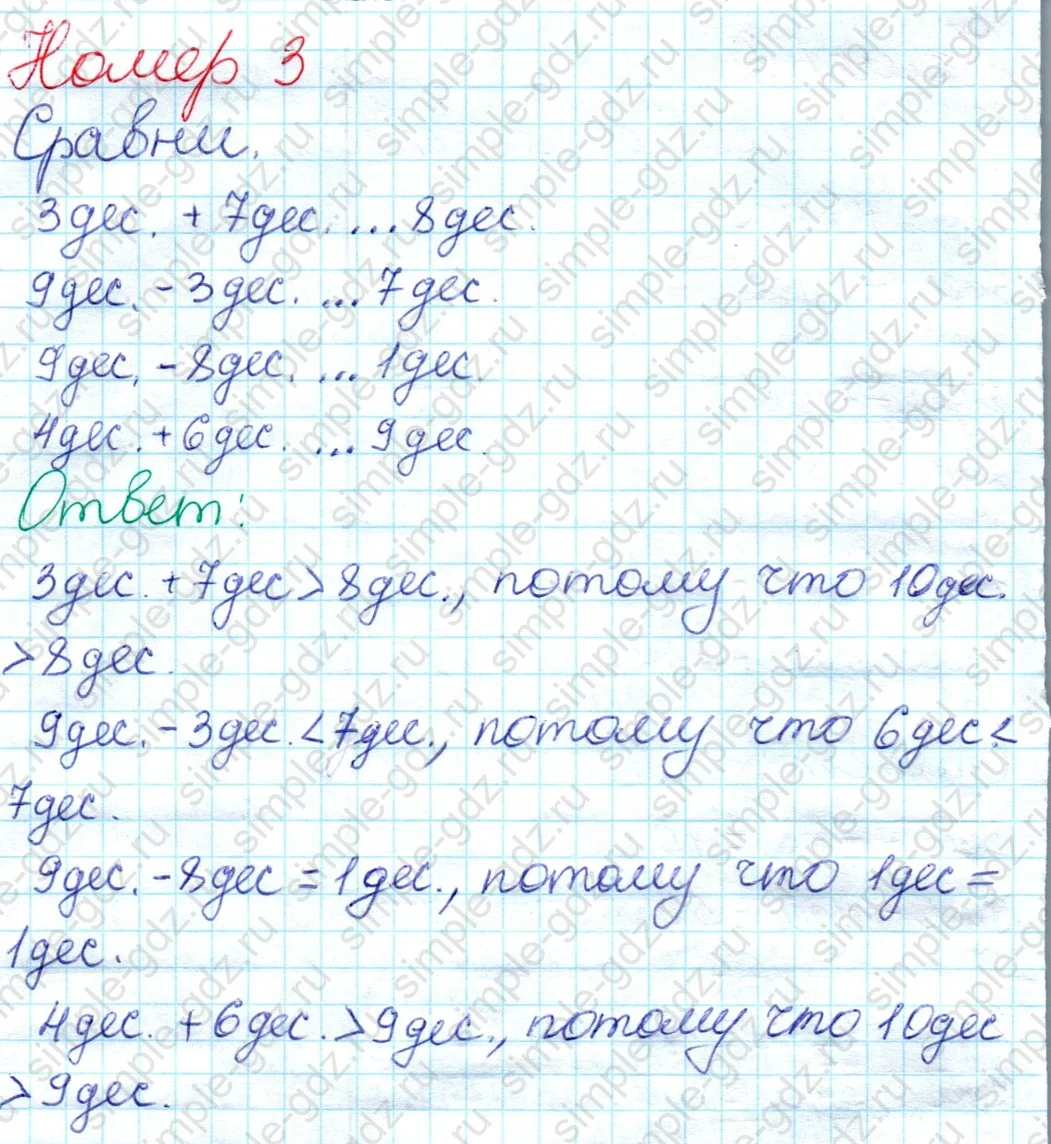 Номер 3
Сравни.
3дес. + 7дес. ... 8дес.
9дес. - 3дес. ... 7дес.
9дес. - 8дес. ... 1дес.
4дес. + 6дес. ... 9дес.
Ответ:
3дес. + 7дес > 8дес., потому что 10дес.
> 8дес.
9дес. - 3дес. < 7дес., потому что 6дес. <
7дес.
9дес. - 8дес = 1дес., потому что 1дес =
1дес.
4дес. + 6дес. > 9дес., потому что 10дес
> 9дес.
simple-gdz.ru